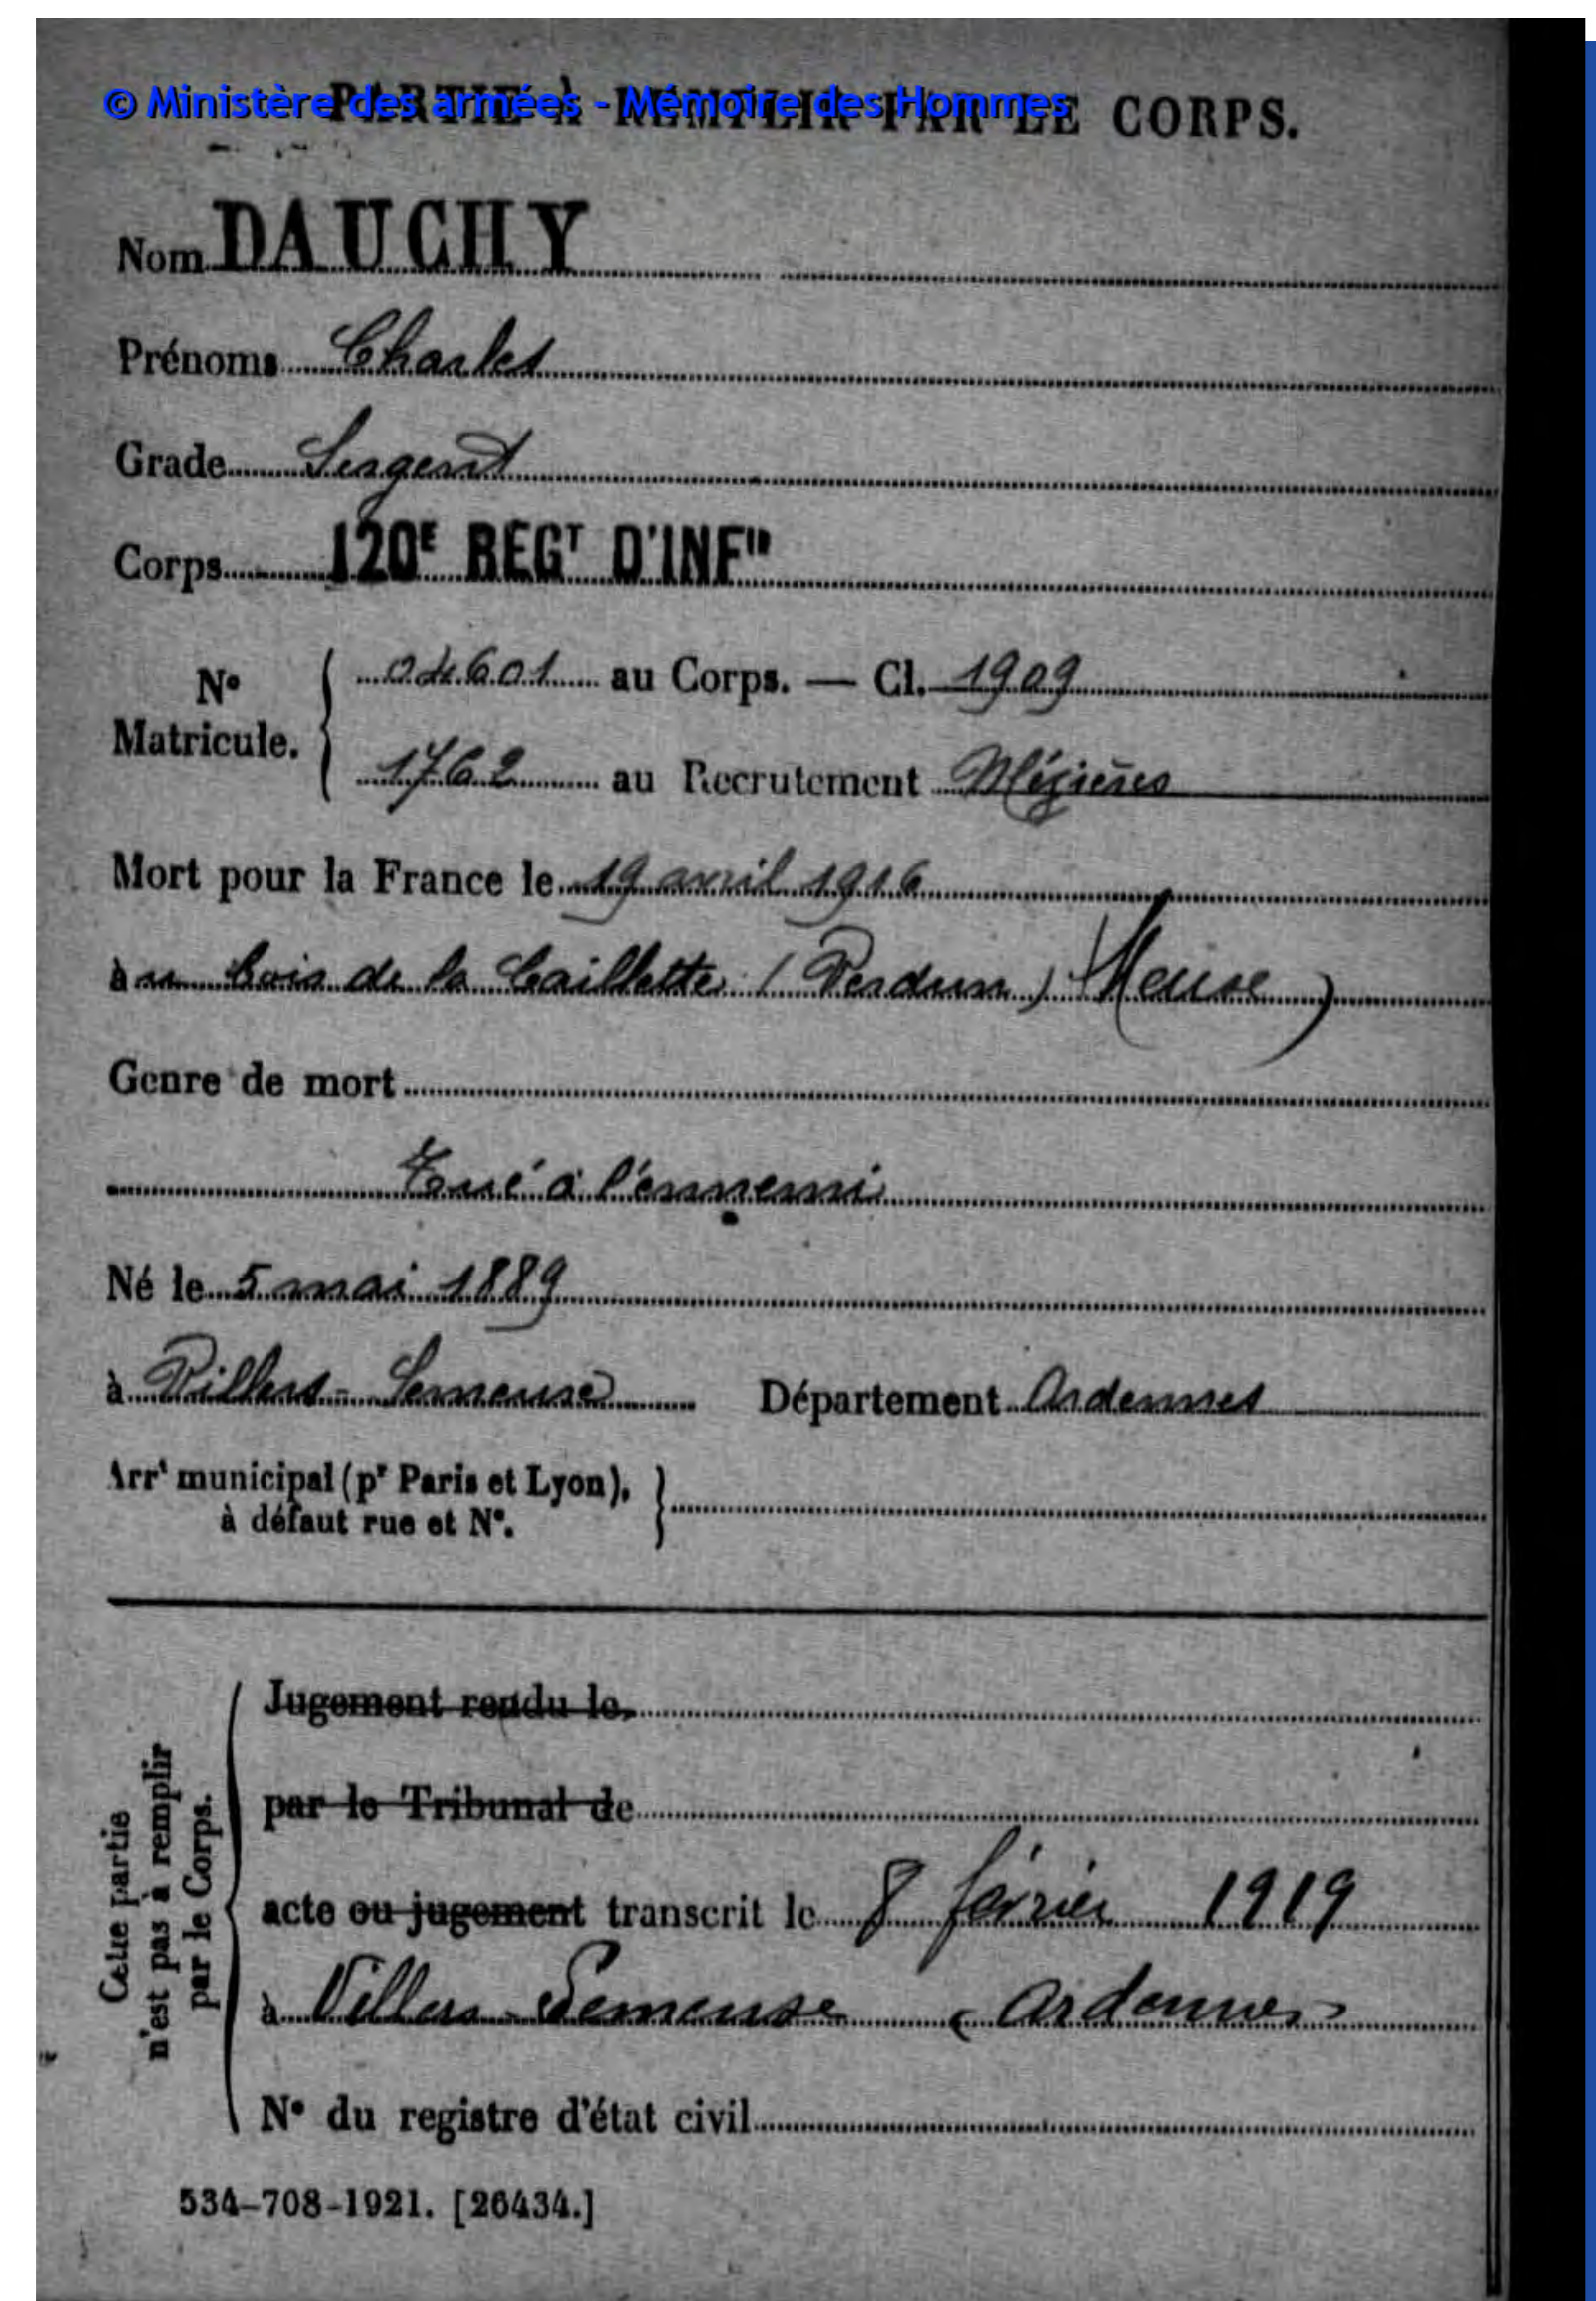 © Ministère des armées - Mémoire des Hommes
PARTIE À REMPLIR PAR LE CORPS.
Nom DAUCHY
Prénoms Charles
Grade Sergent
Corps 120E REGT D'INFie
No Matricule. 04601 au Corps. — Cl. 1909
1762 au Recrutement Mézières
Mort pour la France le 19 avril 1916
à u bois de la Caillette (Verdun) Meuse)
Genre de mort
Tué à l'ennemi
Né le 5 mai 1889
à Villers-Semeuse Département Ardennes
Arrt municipal (pr Paris et Lyon),
à défaut rue et No.
Cette partie
n'est pas à remplir
par le Corps.
Jugement rendu le
par le Tribunal de
acte ou jugement transcrit le 8 février 1919
à Villers-Semeuse (Ardennes)
No du registre d'état civil
534-708-1921. [26434.]